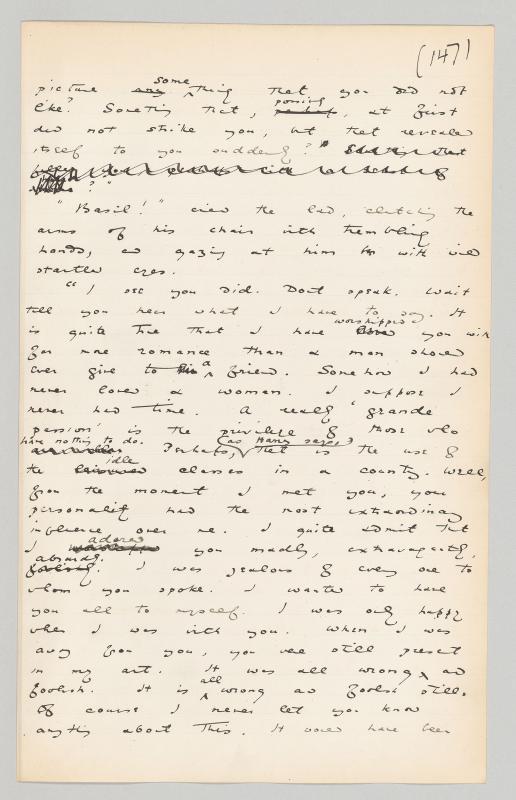 (147)
some
picture any thing that you did not
passing
like? Something that, perhaps, at first
did not strike you, but that revealed
itself to you suddenly?"
?"
"Basil!" cried the lad, clutching the
arms of his chair with trembling
hands, and gazing at him with wild
startled eyes.
"I see you did. Dont speak. Wait
till you hear what I have to say. It
worshipped
is quite true that I have loved you with
far more romance than a man should
a
ever give to his friend. Somehow I had
never loved a woman. I suppose I
never had time. A really 'grande
passion' is the privilege of those who
have nothing to do. (as Harry says,)
Perhaps, that is the use of
idle
the leisured classes in a country. Well,
from the moment I met you, your
personality had the most extraordinary
influence over me. I quite admit that
adored
I worshipped you madly, extravagantly,
absurdly.
foolishly. I was jealous of every one to
whom you spoke. I wanted to have
you all to myself. I was only happy
when I was with you. When I was
away from you, you were still present
in my art. It was all wrong and
all
foolish. It is wrong and foolish still.
Of course I never let you know
anything about this. It would have been